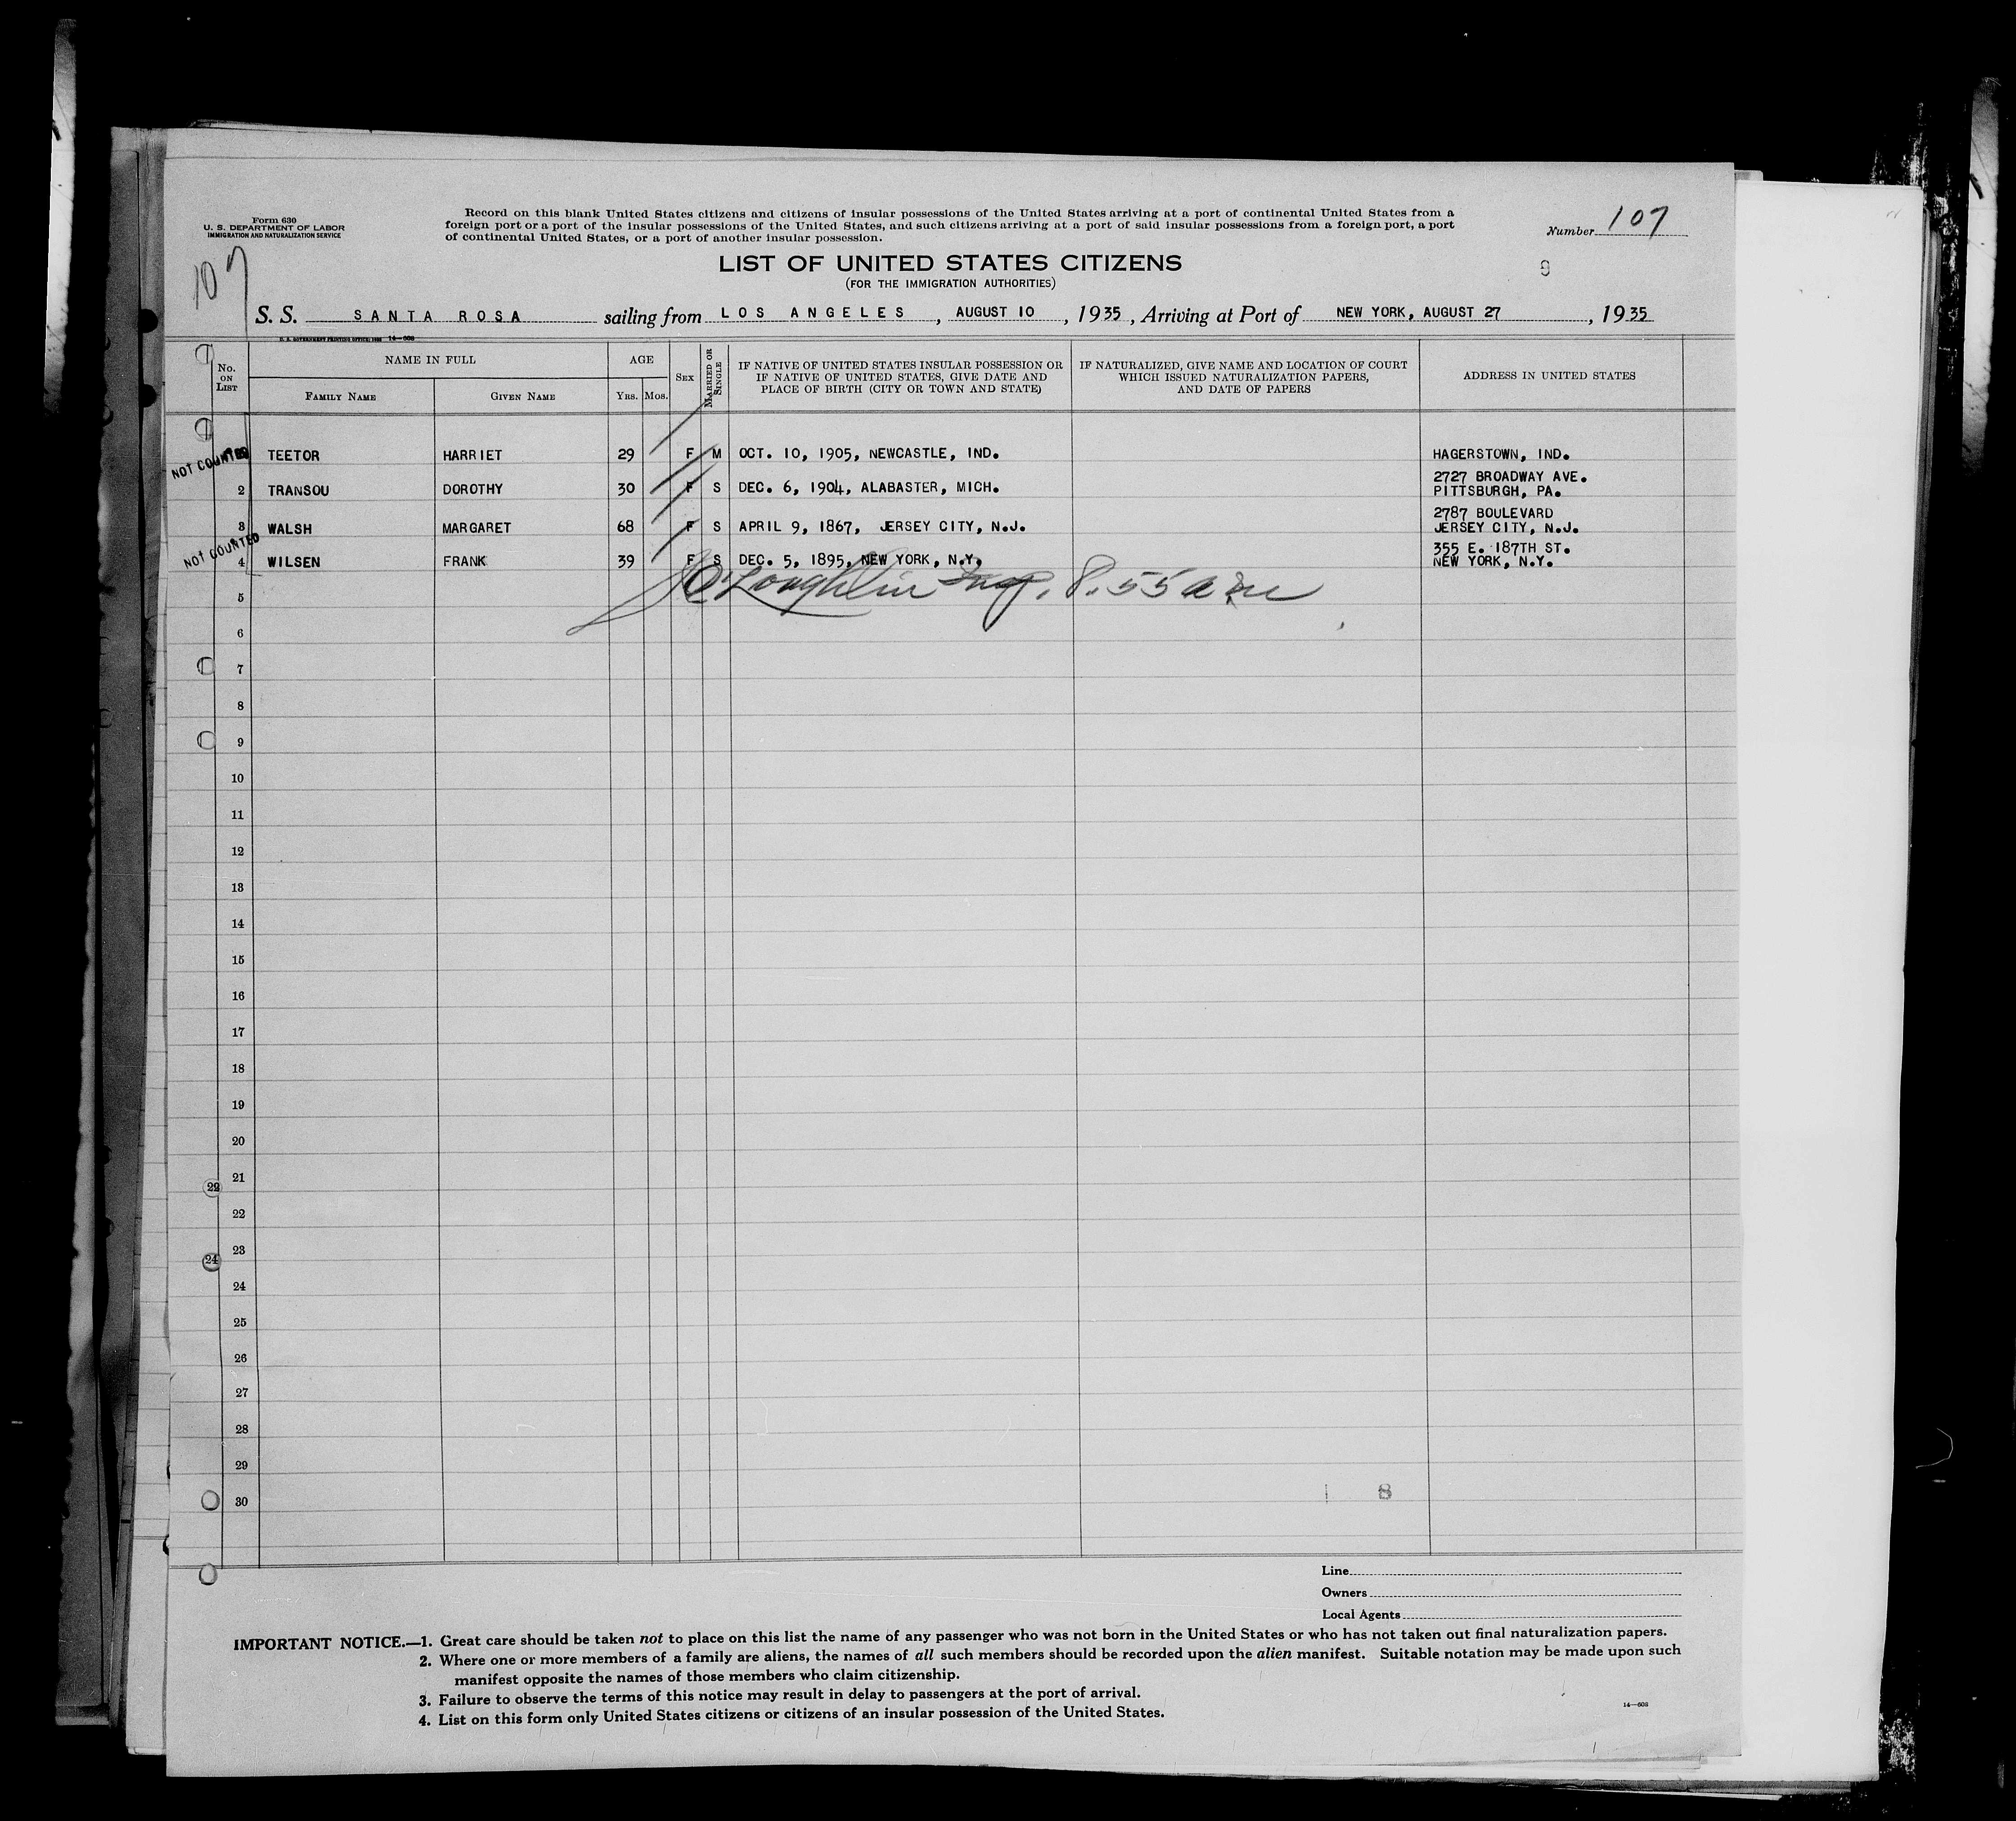 Form 630
U. S. DEPARTMENT OF LABOR
IMMIGRATION AND NATURALIZATION SERVICE
Record on this blank United States citizens and citizens of insular possessions of the United States arriving at a port of continental United States from a
foreign port or a port of the insular possessions of the United States, and such citizens arriving at a port of said insular possessions from a foreign port, a port
of continental United States, or a port of another insular possession.
Number 107
107
LIST OF UNITED STATES CITIZENS
9
(FOR THE IMMIGRATION AUTHORITIES)
S. S. SANTA ROSA sailing from LOS ANGELES, AUGUST 10, 1935, Arriving at Port of NEW YORK, AUGUST 27, 1935
14—608
No. ON LIST NAME IN FULL AGE SEX MARRIED OR SINGLE IF NATIVE OF UNITED STATES INSULAR POSSESSION OR IF NATIVE OF UNITED STATES, GIVE DATE AND PLACE OF BIRTH (CITY OR TOWN AND STATE) IF NATURALIZED, GIVE NAME AND LOCATION OF COURT WHICH ISSUED NATURALIZATION PAPERS, AND DATE OF PAPERS ADDRESS IN UNITED STATES
FAMILY NAME GIVEN NAME YRS. MOS.
NOT COUNTED TEETOR HARRIET 29 F M OCT. 10, 1905, NEWCASTLE, IND. HAGERSTOWN, IND.
2 TRANSOU DOROTHY 30 F S DEC. 6, 1904, ALABASTER, MICH. 2727 BROADWAY AVE. PITTSBURGH, PA.
3 WALSH MARGARET 68 F S APRIL 9, 1867, JERSEY CITY, N.J. 2787 BOULEVARD JERSEY CITY, N.J.
NOT COUNTED 4 WILSEN FRANK 39 F S DEC. 5, 1895, NEW YORK, N.Y. 355 E. 187TH ST. NEW YORK, N.Y.
O'Loughlin Insp. 8.55 a.m
5
6
7
8
9
10
11
12
13
14
15
16
17
18
19
20
21
22
22
23
24
24
25
26
27
28
29
30
8
Line
Owners
Local Agents
IMPORTANT NOTICE.—1. Great care should be taken not to place on this list the name of any passenger who was not born in the United States or who has not taken out final naturalization papers.
2. Where one or more members of a family are aliens, the names of all such members should be recorded upon the alien manifest. Suitable notation may be made upon such
manifest opposite the names of those members who claim citizenship.
3. Failure to observe the terms of this notice may result in delay to passengers at the port of arrival.
4. List on this form only United States citizens or citizens of an insular possession of the United States.
14—608